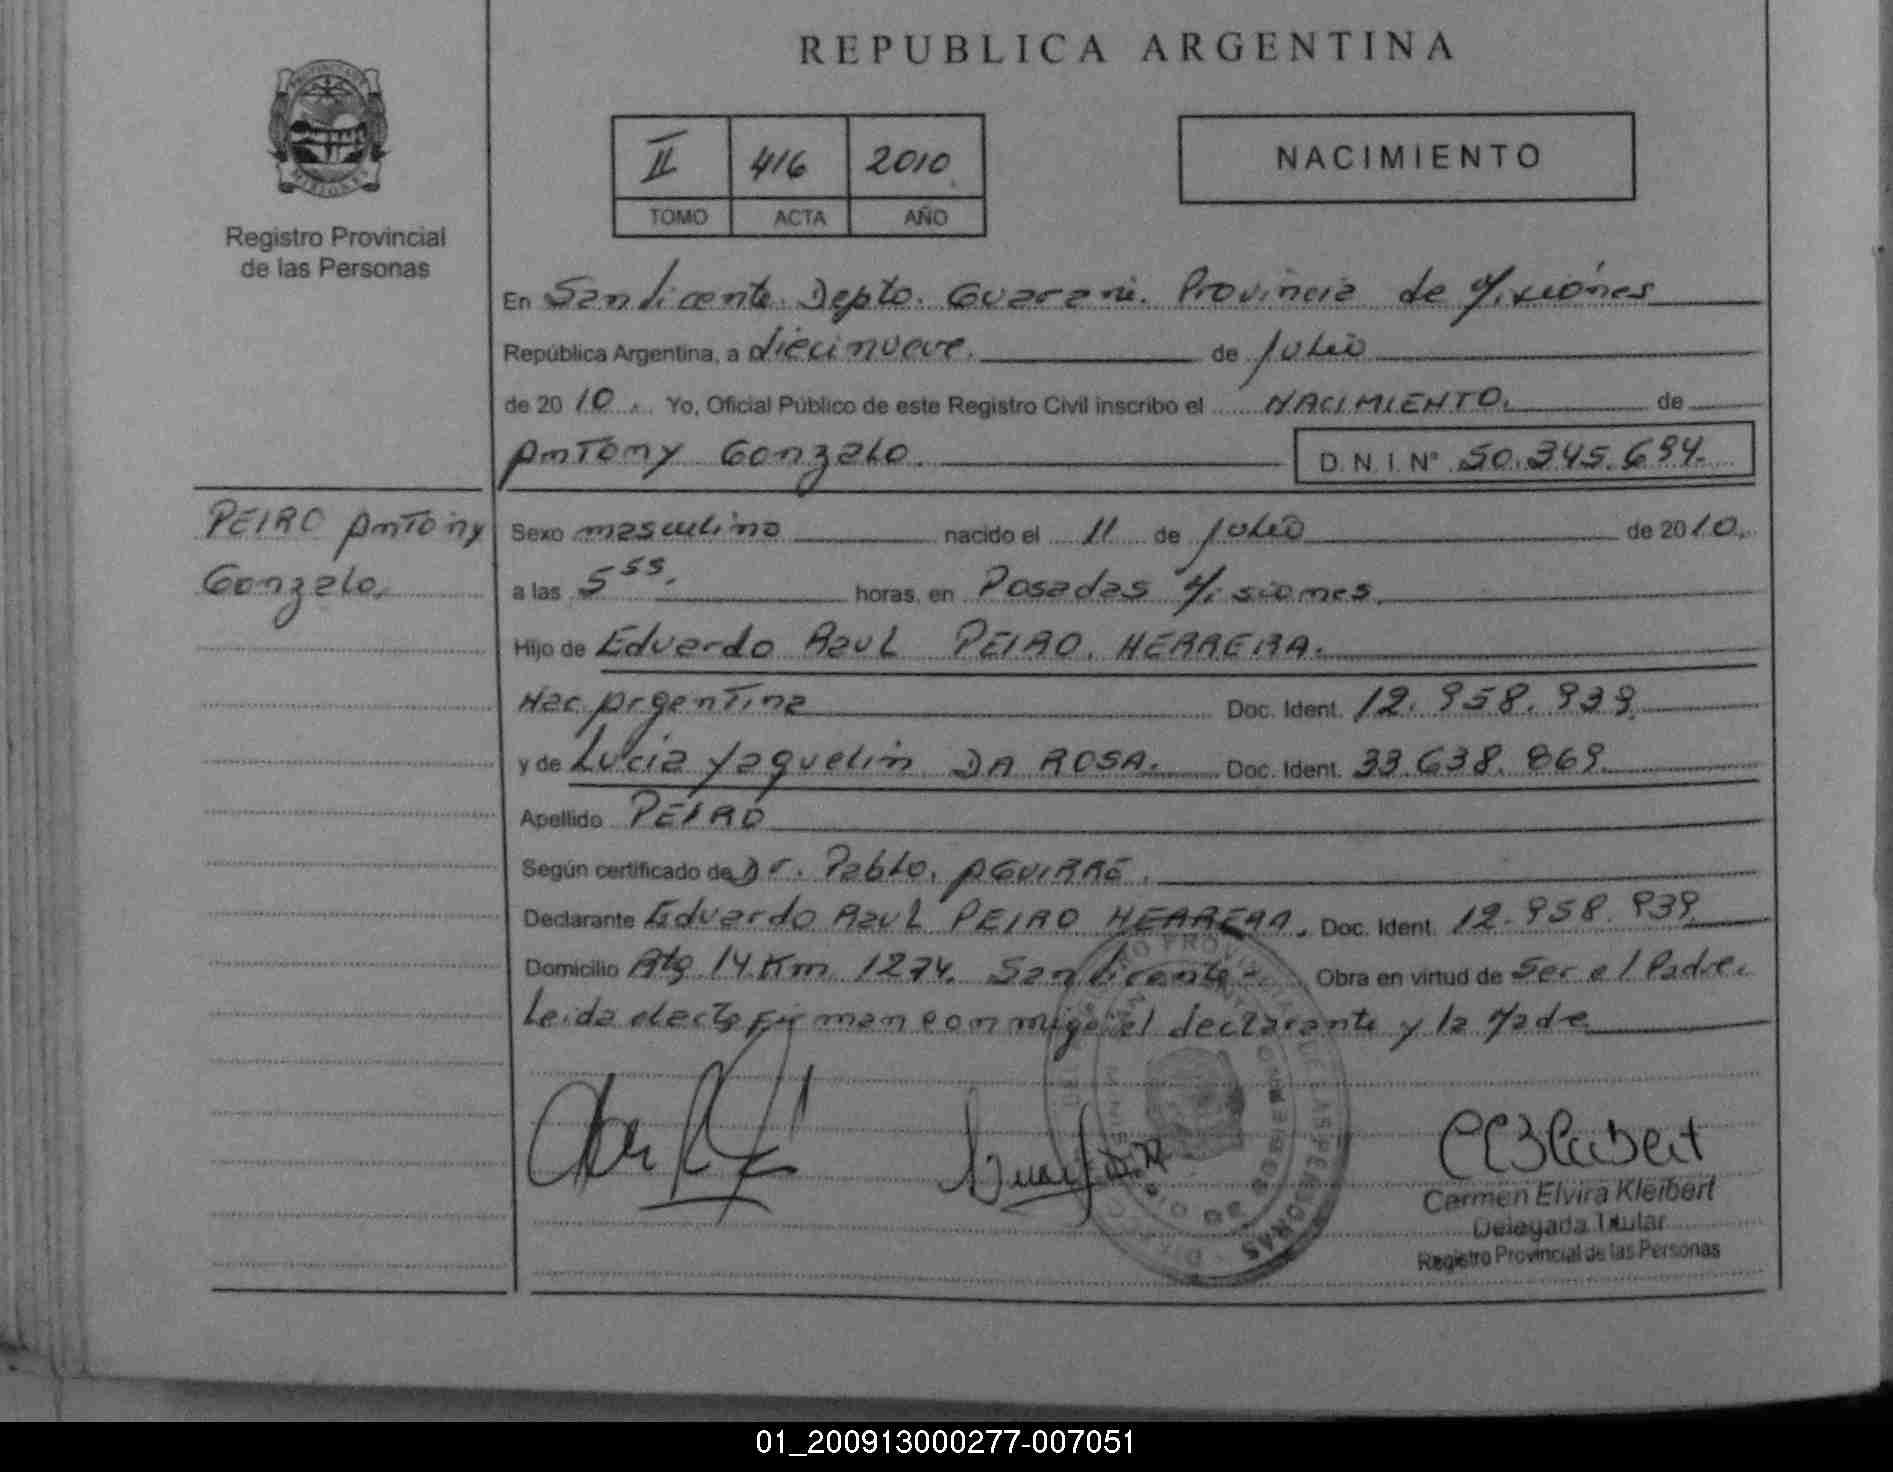 REPUBLICA ARGENTINA
PROVINCIA DE
MISIONES
Registro Provincial
de las Personas
II 416 2010
TOMO ACTA AÑO
NACIMIENTO
En San Vicente. Depto. Guarani. Provincia de Misiones
República Argentina, a diecinueve. de Julio
de 2010. Yo, Oficial Público de este Registro Civil inscribo el NACIMIENTO. de
Antony Gonzalo. D. N. I. N° 50.345.694.
PEIRO Antony
Gonzalo.
Sexo masculino nacido el 11 de Julio de 2010.
a las 5 55. horas, en Posadas Misiones.
Hijo de Eduardo Raul PEIRO. HERRERA.
Nac. Argentina Doc. Ident. 12.958.939.
y de Lucia Yaquelin DA ROSA. Doc. Ident. 33.638.869
Apellido PEIRO
Según certificado de Dr. Pablo. AGUIRRE.
Declarante Eduardo Raul PEIRO HERRERA. Doc. Ident. 12.958.939
Domicilio Rta 14 Km 1274. San Vicente. Obra en virtud de Ser el Padre.
Leida el acta firman con migo el declarante y la Madre
Carmen Elvira Kleibert
Delegada Titular
Registro Provincial de las Personas
01_200913000277-007051